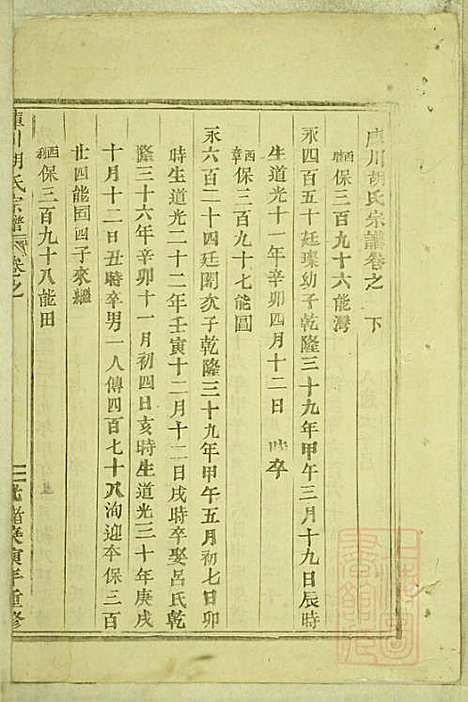 庫川胡氏宗譜卷之 下
保三百九十六能灣
永四百五十廷璨幼子乾隆三十九年甲午三月十九日辰時
生道光十一年辛卯四月十二日 時卒
保三百九十七能圓
永六百二十四廷閑次子乾隆三十九年甲午五月初七日卯
時生道光二十二年壬寅十二月十二日戌時卒娶呂氏乾
隆三十六年辛卯十一月初四日亥時生道光三十年庚戌
十月十二日丑時卒男一人傳四百七十八洵迎本保三百
廿四能固四子來繼
保三百九十八能田
庫川胡氏宗譜 卷之
光緒庚寅年重修